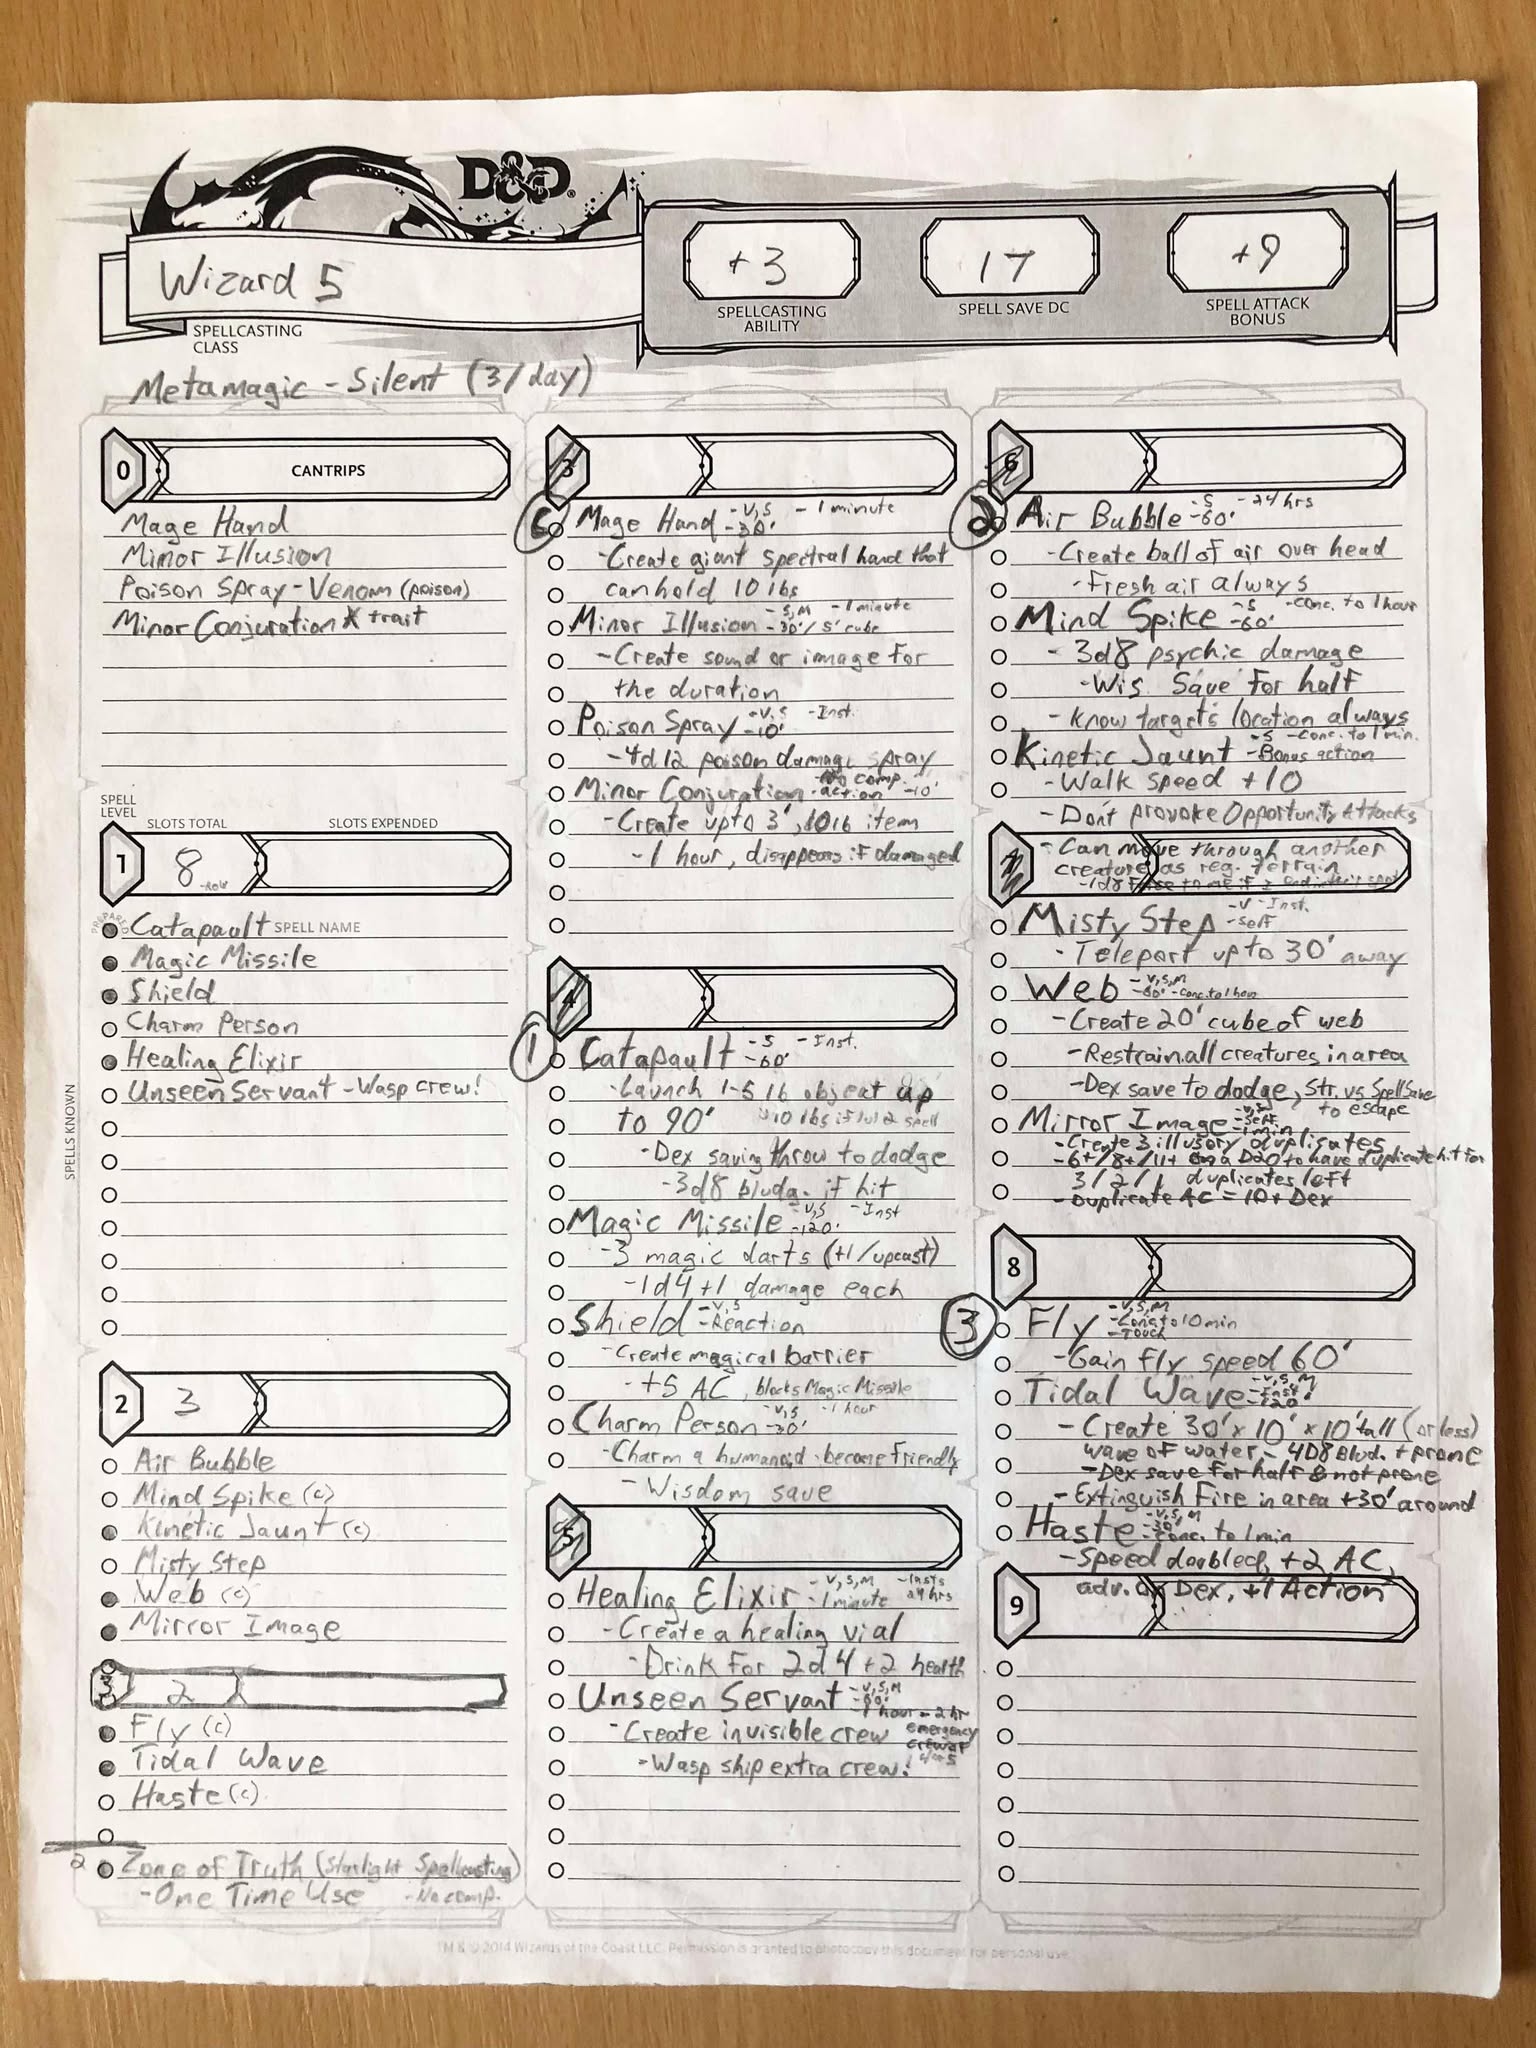 D&D®
Wizard 5
SPELLCASTING
CLASS
+3
SPELLCASTING
ABILITY
17
SPELL SAVE DC
+9
SPELL ATTACK
BONUS
Metamagic - Silent (3/day)
0 CANTRIPS
Mage Hand
Minor Illusion
Poison Spray - Venom (poison)
Minor Conjuration * trait
SPELL
LEVEL
SLOTS TOTAL
SLOTS EXPENDED
1 8
PREPARED
Catapault SPELL NAME
Magic Missile
Shield
Charm Person
Healing Elixir
Unseen Servant - Wasp crew!
SPELLS KNOWN
2 3
Air Bubble
Mind Spike (c)
Kinetic Jaunt (c)
Misty Step
Web (c)
Mirror Image
3 2
Fly (c)
Tidal Wave
Haste (c)
2 Zone of Truth (Starlight Spellcasting)
-One Time Use -No comp.
3
C
Mage Hand -V,S -1 minute
-30'
-Create giant spectral hand that
can hold 10 lbs
Minor Illusion -S,M -1 minute
-30'/5' cube
-Create sound or image for
the duration
Poison Spray -V,S -Inst.
-10'
-4d12 poison damage spray
Minor Conjuration -No comp.
-action -10'
-Create up to 3', 10 lb item
-1 hour, disappears if damaged
4
1
Catapault -S -Inst.
-60'
-Launch 1-5 lb object up
to 90'
-Dex saving throw to dodge
-3d8 bludg. if hit
Magic Missile -V,S -Inst
-120'
-3 magic darts (+1/upcast)
-1d4+1 damage each
Shield -V,S
-Reaction
-Create magical barrier
-+5 AC, blocks Magic Missile
Charm Person -V,S -1 hour
-30'
-Charm a humanoid - become friendly
-Wisdom save
5
Healing Elixir -V,S,M -lasts
-1 minute 24 hrs
-Create a healing vial
-Drink for 2d4+2 health
Unseen Servant -V,S,M
-60'
-1 hour -2 hr
-Create invisible crew emergency
-Wasp ship extra crew!
6
2
Air Bubble -S -24 hrs
-60'
-Create ball of air over head
-Fresh air always
Mind Spike -S -conc. to 1 hour
-60'
-3d8 psychic damage
-Wis. Save for half
-Know targets location always
Kinetic Jaunt -S -Conc. to 1 min.
-Bonus action
-Walk speed +10
-Don't provoke Opportunity Attacks
-Can move through another
creature as reg. terrain
Misty Step -V -Inst.
-self
-Teleport up to 30' away
Web -V,S,M
-60' -conc. to 1 hour
-Create 20' cube of web
-Restrain all creatures in area
-Dex save to dodge, Str. vs Spell Save
to escape
Mirror Image -V,S
-Self
-1 min
-Create 3 illusory duplicates
-6+/8+/11+ on a D20 to have duplicate hit for
3/2/1 duplicates left
-Duplicate AC = 10 + Dex
8
3
Fly -V,S,M
-Conc to 10 min
-Touch
-Gain fly speed 60'
Tidal Wave -V,S,M
-Inst
-120'
-Create 30' x 10' x 10' tall (or less)
wave of water - 4D8 Blud. + prone
-Dex save for half & not prone
-Extinguish Fire in area +30' around
Haste -V,S,M
-30'
-Conc. to 1 min
-Speed doubled, +2 AC,
adv. on Dex, +1 Action
9
TM & © 2014 Wizards of the Coast LLC. Permission is granted to photocopy this document for personal use.